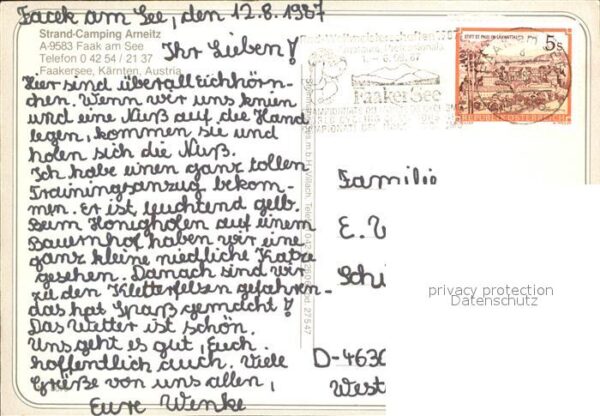 Facek am See, den 12.8.1987
Strand-Camping Arneitz
A-9583 Faak am See
Telefon 0 42 54 / 21 37
Faakersee, Kärnten, Austria
Ihr Lieben!
Hier sind überall Eichhörn-
chen. Wenn wir uns knien
und eine Nuß auf die Hand
legen, kommen sie und
holen sich die Nuß.
Ich habe einen ganz tollen
Trainingsanzug bekom-
men. Er ist leuchtend gelb.
Beim Honigholen auf einem
Bauernhof haben wir eine
ganz kleine niedliche Katze
gesehen. Danach sind wir
zu den Kletterfelsen gefahren
das hat Spaß gemacht!
Das Wetter ist schön.
Uns geht es gut, Euch
hoffentlich auch. Viele
Grüße von uns allen,
Eure Wenke
Faaker See
5s
STIFT ST. PAUL IM LAVANTTAL
REPUBLIK ÖSTERREICH
Familie
E. V
Schi
D-4630
West
privacy protection
Datenschutz